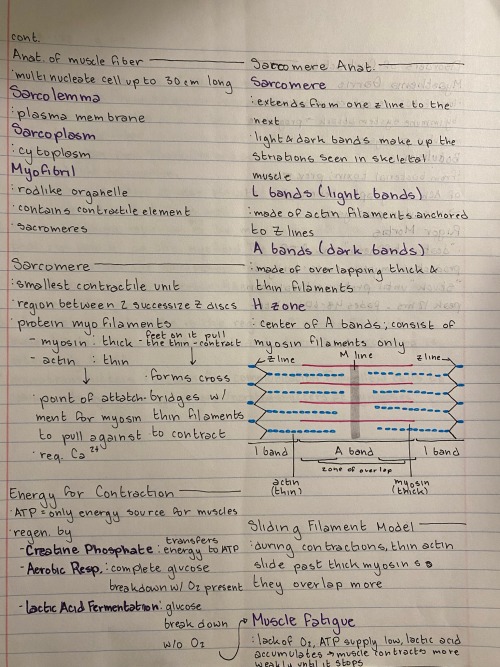 cont.
Anat. of muscle fiber
· multinucleate cell up to 30cm long
Sarcolemma
: plasma membrane
Sarcoplasm
: cytoplasm
Myofibril
: rodlike organelle
· contains contractile element
· sacromeres
Sarcomere
: smallest contractile unit
· region between 2 successize Z discs
· protein myofilaments
- myosin : thick - feet on it pull the thin → contract
- actin : thin
↓
↓
: forms cross
· point of attatch- bridges w/
ment for myosin thin filaments
to pull against to contract
· req. Ca2+
Energy for Contraction
· ATP = only energy source for muscles
· regen. by
- Creatine Phosphate : transfers energy to ATP
- Aerobic Resp. : complete glucose
breakdown w/ O2 present
- Lactic Acid Fermentation : glucose
break down
w/o O2
Sarcomere Anat.
Sarcomere
: extends from one z line to the
next
· light & dark bands make up the
striations seen in skeletal
muscle
L bands (light bands)
: made of actin filaments anchored
to Z lines
A bands (dark bands)
: made of overlapping thick &
thin filaments
H zone
: center of A bands; consist of
myosin filaments only
z line M line z line
I band A band I band
zone of overlap
actin (thin) myosin (thick)
Sliding Filament Model
: during contractions, thin actin
slide past thick myosin so
they overlap more
Muscle Fatigue
: lack of O2, ATP supply low, lactic acid
accumulates → muscle contracts more
weakly until it stops